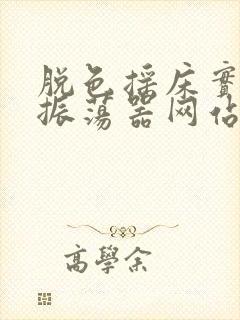 脱色摇床实
振荡器网站
高學余